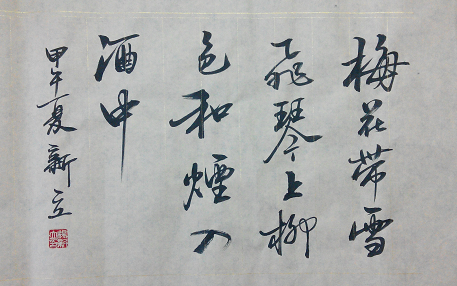 梅花带雪
飛琴上柳
色和煙入
酒中
甲午夏新立